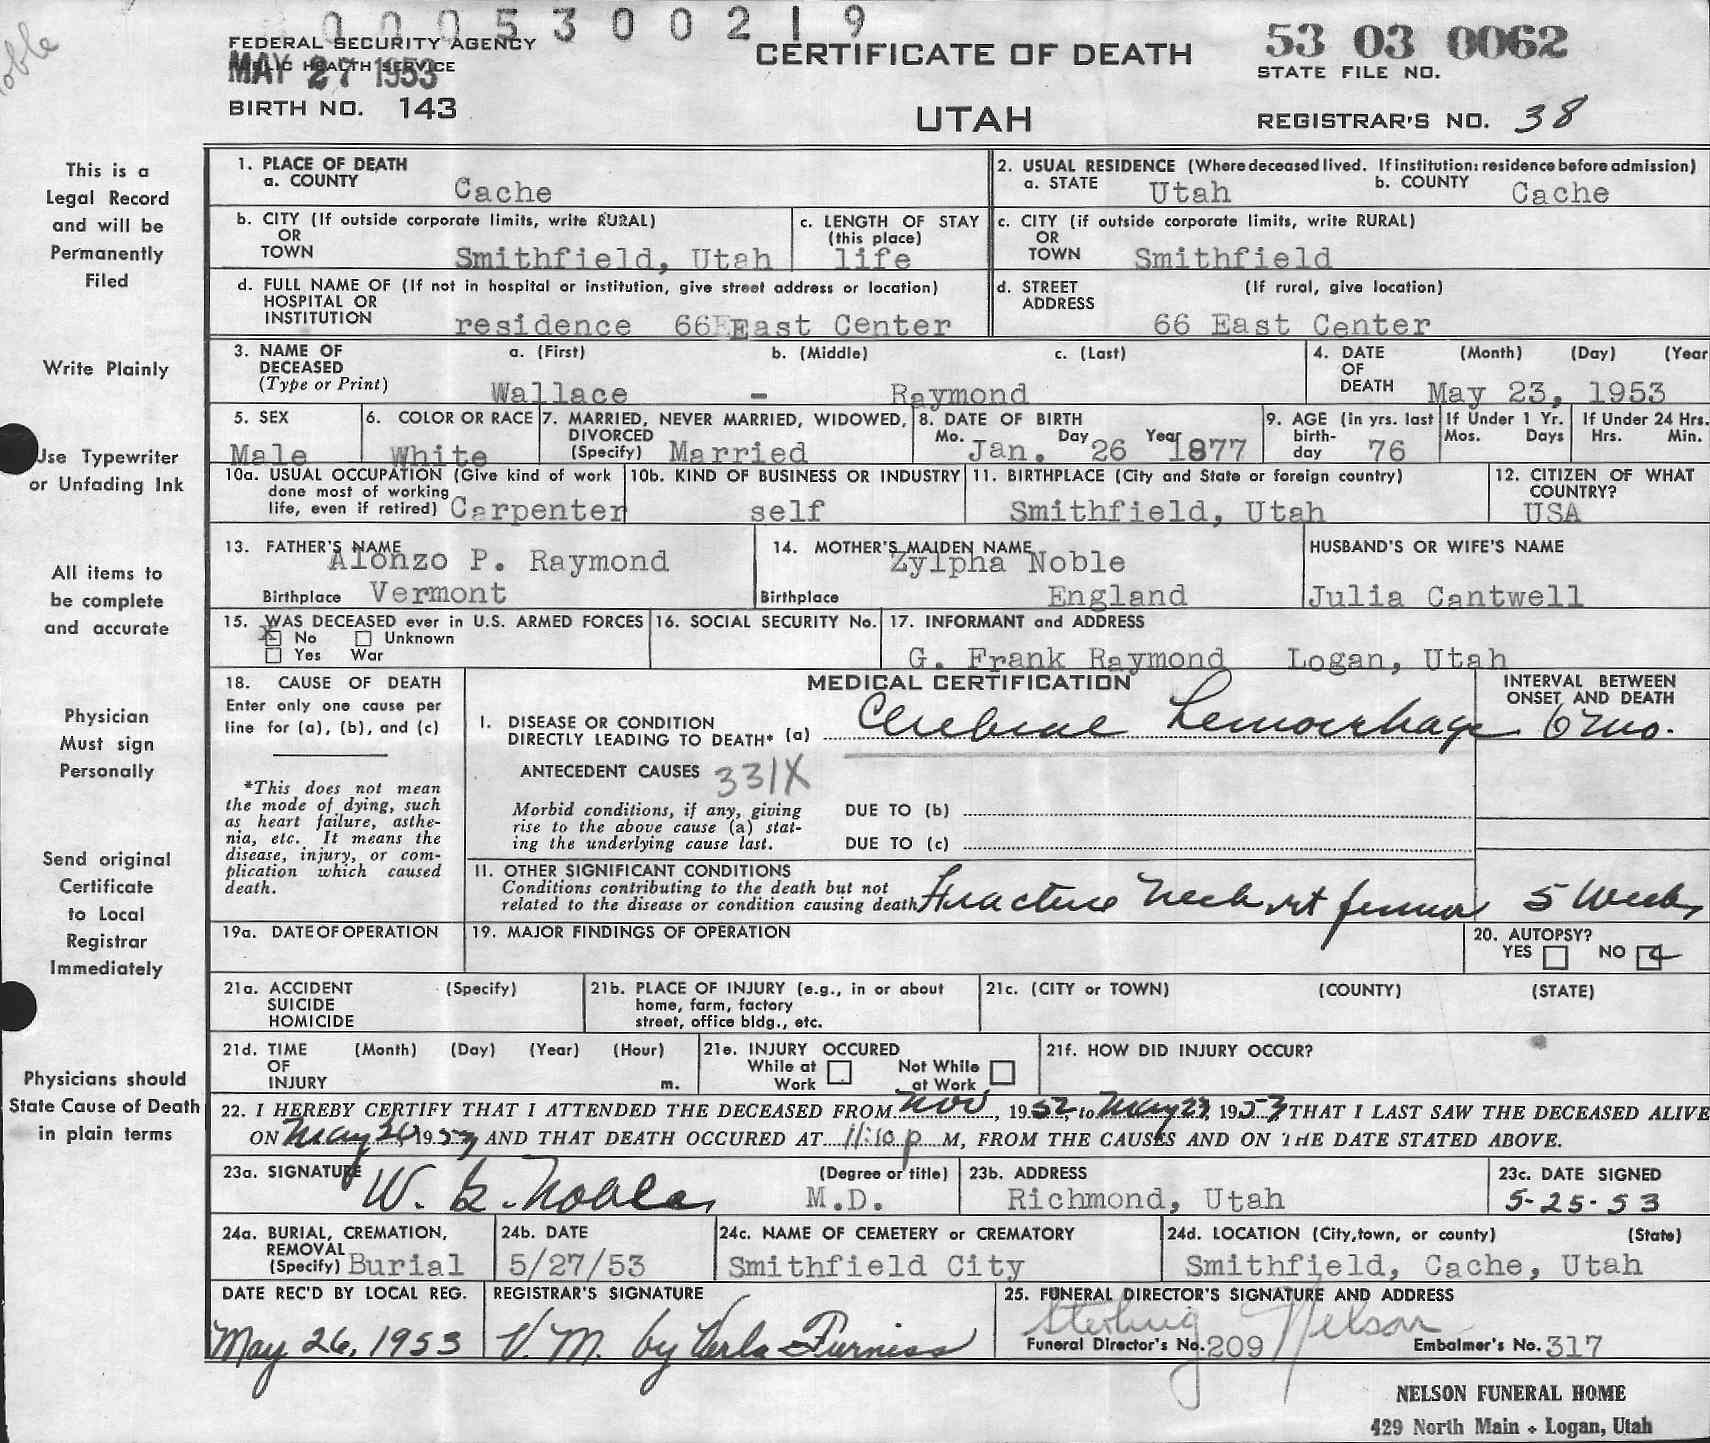 Noble
0 0 0 5 3 0 0 2 1 9
FEDERAL SECURITY AGENCY
PUBLIC HEALTH SERVICE
MAY 27 1953
BIRTH NO. 143
CERTIFICATE OF DEATH
UTAH
53 03 0062
STATE FILE NO.
REGISTRAR'S NO. 38
This is a
Legal Record
and will be
Permanently
Filed
Write Plainly
Use Typewriter
or Unfading Ink
All items to
be complete
and accurate
Physician
Must sign
Personally
Send original
Certificate
to Local
Registrar
Immediately
Physicians should
State Cause of Death
in plain terms
1. PLACE OF DEATH
a. COUNTY Cache
2. USUAL RESIDENCE (Where deceased lived. If institution: residence before admission)
a. STATE Utah b. COUNTY Cache
b. CITY (If outside corporate limits, write RURAL)
OR
TOWN Smithfield, Utah
c. LENGTH OF STAY
(this place)
life
c. CITY (if outside corporate limits, write RURAL)
OR
TOWN Smithfield
d. FULL NAME OF (If not in hospital or institution, give street address or location)
HOSPITAL OR
INSTITUTION residence 66 East Center
d. STREET (If rural, give location)
ADDRESS
66 East Center
3. NAME OF a. (First) b. (Middle) c. (Last)
DECEASED
(Type or Print) Wallace - Raymond
4. DATE (Month) (Day) (Year
OF
DEATH May 23, 1953
5. SEX
Male
6. COLOR OR RACE
White
7. MARRIED, NEVER MARRIED, WIDOWED,
DIVORCED
(Specify) Married
8. DATE OF BIRTH
Mo. Jan. Day 26 Year 1877
9. AGE (in yrs. last
birth-
day 76
If Under 1 Yr.
Mos. Days
If Under 24 Hrs.
Hrs. Min.
10a. USUAL OCCUPATION (Give kind of work
done most of working
life, even if retired) Carpenter
10b. KIND OF BUSINESS OR INDUSTRY
self
11. BIRTHPLACE (City and State or foreign country)
Smithfield, Utah
12. CITIZEN OF WHAT
COUNTRY?
USA
13. FATHER'S NAME
Alonzo P. Raymond
Birthplace Vermont
14. MOTHER'S MAIDEN NAME
Zylpha Noble
Birthplace England
HUSBAND'S OR WIFE'S NAME
Julia Cantwell
15. WAS DECEASED ever in U.S. ARMED FORCES
X No Unknown
Yes War
16. SOCIAL SECURITY No.
17. INFORMANT and ADDRESS
G. Frank Raymond Logan, Utah
18. CAUSE OF DEATH
Enter only one cause per
line for (a), (b), and (c)
*This does not mean
the mode of dying, such
as heart failure, asthe-
nia, etc. It means the
disease, injury, or com-
plication which caused
death.
MEDICAL CERTIFICATION
INTERVAL BETWEEN
ONSET AND DEATH
I. DISEASE OR CONDITION
DIRECTLY LEADING TO DEATH* (a) Cerebral Hemorrhage 6 mo.
ANTECEDENT CAUSES 331X
Morbid conditions, if any, giving
rise to the above cause (a) stat-
ing the underlying cause last.
DUE TO (b)
DUE TO (c)
11. OTHER SIGNIFICANT CONDITIONS
Conditions contributing to the death but not
related to the disease or condition causing death Fracture Neck rt femur 5 Weeks
19a. DATE OF OPERATION
19. MAJOR FINDINGS OF OPERATION
20. AUTOPSY?
YES NO
21a. ACCIDENT (Specify)
SUICIDE
HOMICIDE
21b. PLACE OF INJURY (e.g., in or about
home, farm, factory
street, office bldg., etc.
21c. (CITY or TOWN) (COUNTY) (STATE)
21d. TIME (Month) (Day) (Year) (Hour)
OF
INJURY m.
21e. INJURY OCCURED
While at Not While
Work at Work
21f. HOW DID INJURY OCCUR?
22. I HEREBY CERTIFY THAT I ATTENDED THE DECEASED FROM Nov, 1952, to May 23, 1953 THAT I LAST SAW THE DECEASED ALIVE
ON May 20, 1953 AND THAT DEATH OCCURED AT 11:10 p M, FROM THE CAUSES AND ON THE DATE STATED ABOVE.
23a. SIGNATURE (Degree or title)
W. R. Noble M.D.
23b. ADDRESS
Richmond, Utah
23c. DATE SIGNED
5-25-53
24a. BURIAL, CREMATION,
REMOVAL
(Specify) Burial
24b. DATE
5/27/53
24c. NAME OF CEMETERY or CREMATORY
Smithfield City
24d. LOCATION (City, town, or county) (State)
Smithfield, Cache, Utah
DATE REC'D BY LOCAL REG.
May 26, 1953
REGISTRAR'S SIGNATURE
V. M. by Verla Furniss
25. FUNERAL DIRECTOR'S SIGNATURE AND ADDRESS
Sterling Nelson
Funeral Director's No. 209 Embalmer's No. 317
NELSON FUNERAL HOME
429 North Main + Logan, Utah